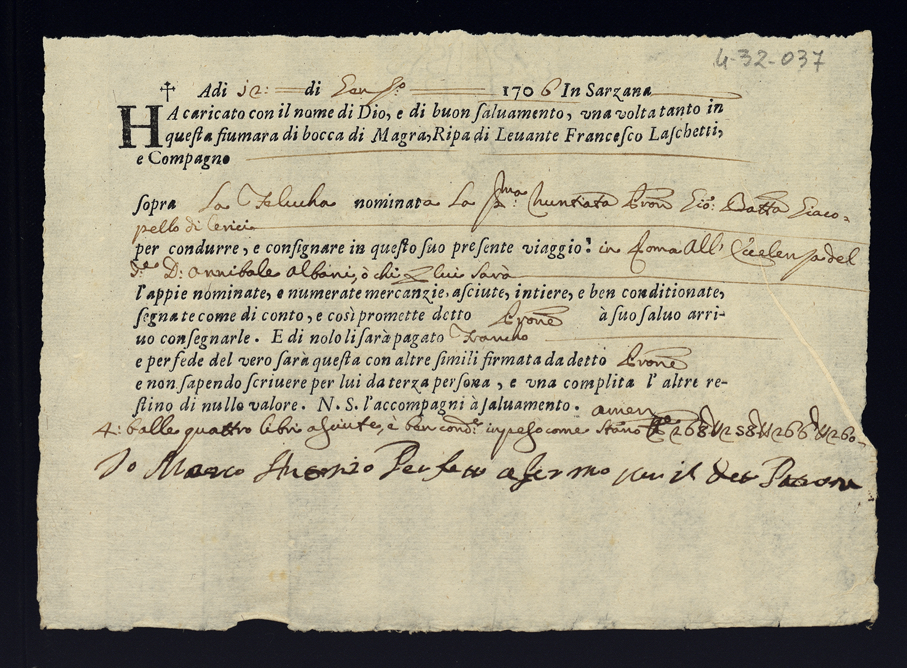 4-32-037
✝ Adi 12: di Gen.ro 1706 In Sarzana
HA caricato con il nome di Dio, e di buon saluamento, vna volta tanto in
questa fiumara di bocca di Magra, Ripa di Leuante Francesco Laschetti,
e Compagno
sopra La Felucha nominata La SS.ma Nuntiata Prone Gio: Batta Giaco-
pello di Lerici
per condurre, e consignare in questo suo presente viaggio: in Roma All'
D: Annibale Albani, ò chi lui sarà
l'appie nominate, e numerate mercanzie, asciute, intiere, e ben conditionate,
segnate come di conto, e così promette detto Prone à suo saluo arri-
uo consegnarle. E di nolo li sarà pagato Francho
e per fede del vero sarà questa con altre simili firmata da detto Prone
e non sapendo scriuere per lui da terza persona, e vna complita l'altre re-
stino di nullo valore. N. S. l'accompagni à saluamento. amen
4: balle quattro libri asciute, è ben cond.e in peso come stano 268 258 266 260
Io Marco Antonio Perfetto afermo per il det Patrone